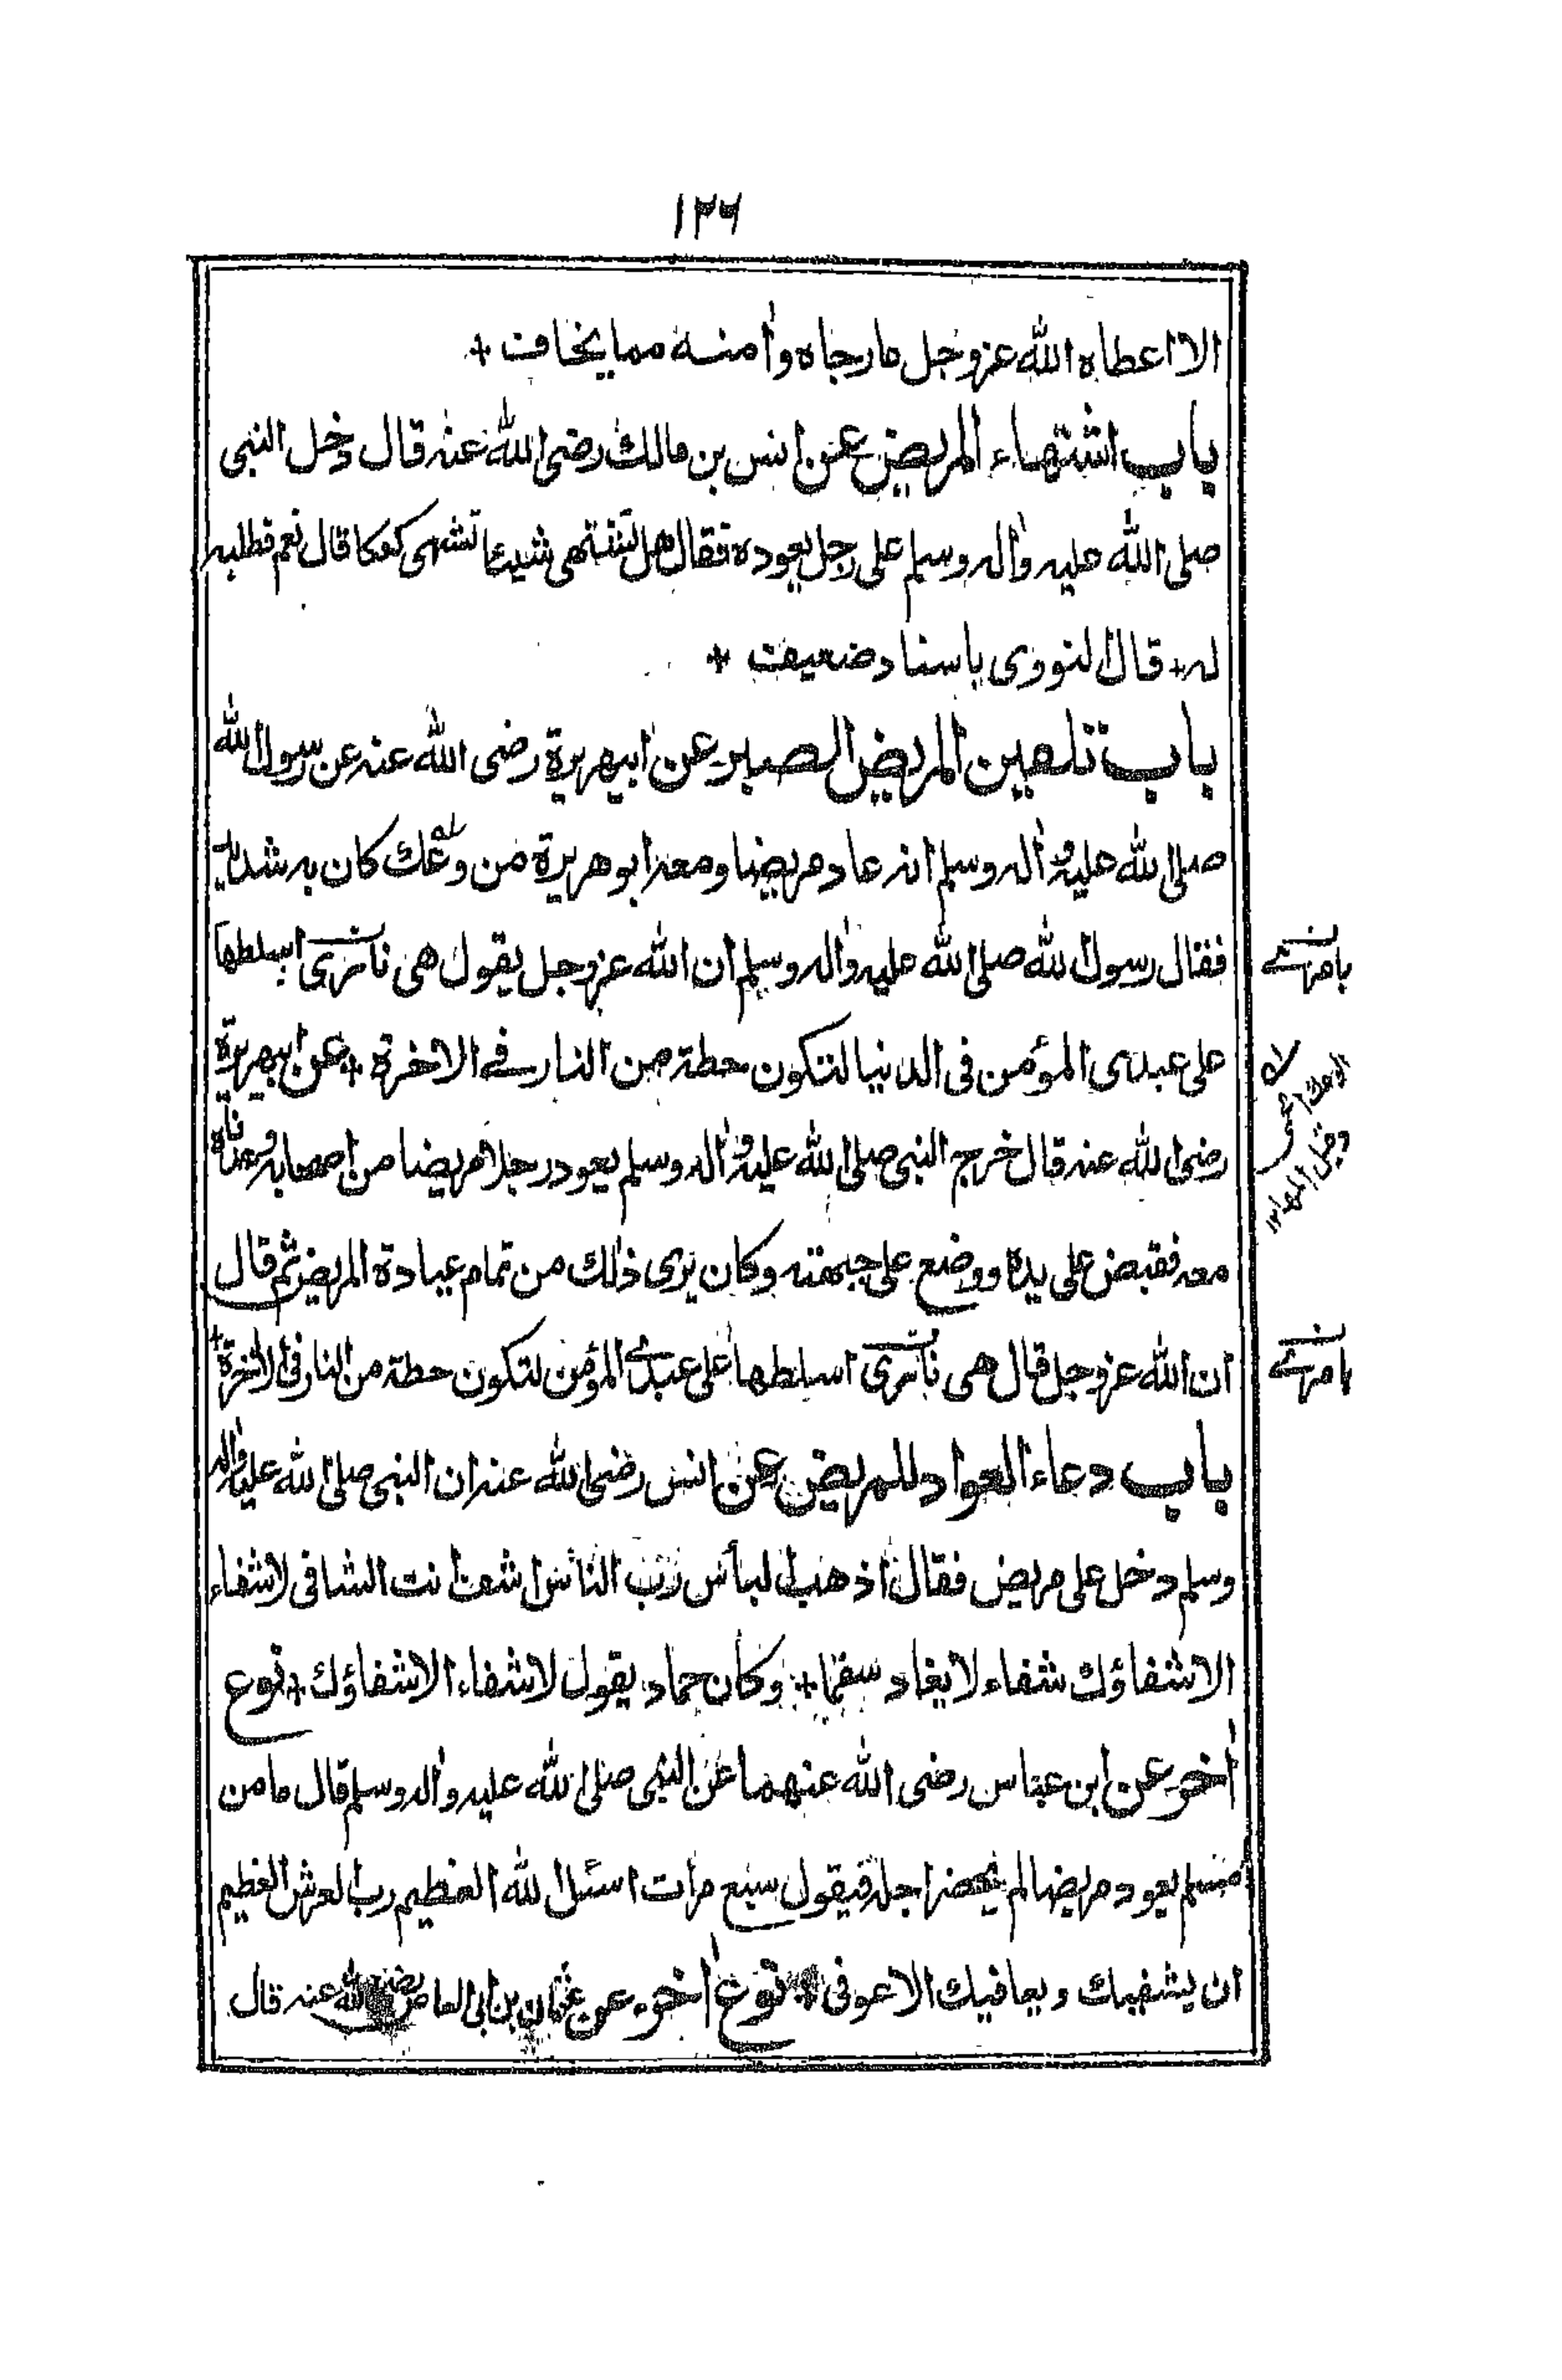 ١٢٦
الا اعطاه الله عزوجل ما رجاه وأمنه مما يخاف +
باب اشتهاء المريض عن انس بن مالك رضى الله عنه قال دخل النبى
صلى الله عليه واله وسلم على رجل يعوده فقال هل تشتهى شيئا تشهى كعكا قال نعم فطلبه
له + قال النووى باسناد ضعيف +
باب تلقين المريض الصبر عن ابيهريرة رضى الله عنه عن رسول الله
صلى الله عليه واله وسلم انه عاد مريضا ومعه ابو هريرة من وعك كان به شديد
فقال رسول الله صلى الله عليه واله وسلم ان الله عزوجل يقول هى نارى اسلطها
على عبدى المؤمن فى الدنيا لتكون حظه من النار فى الاخرة + عن ابيهريرة
رضى الله عنه قال خرج النبى صلى الله عليه واله وسلم يعود رجلا مريضا من اصحابه وعدناه
معه فقبض على يده ووضع على جبهته وكان يرى ذلك من تمام عيادة المريض ثم قال
ان الله عزوجل قال هى نارى اسلطها على عبدى المؤمن لتكون حظه من النار فى الاخرة +
باب دعاء العواد للمريض عن انس رضى الله عنه ان النبى صلى الله عليه واله
وسلم دخل على مريض فقال اذهب الباس رب الناس اشف انت الشافى لا شفاء
الا شفاؤك شفاء لا يغادر سقما + وكان حماد يقول لا شفاء الا شفاؤك + نوع
أخر عن ابن عباس رضى الله عنهما عن النبى صلى الله عليه واله وسلم قال ما من
مسلم يعود مريضا لم يحضر اجله فيقول سبع مرات اسئل الله العظيم رب العرش العظيم
ان يشفيك ويعافيك الا عوفى + نوع أخر عن عثمان بن ابى العاص رضى الله عنه قال